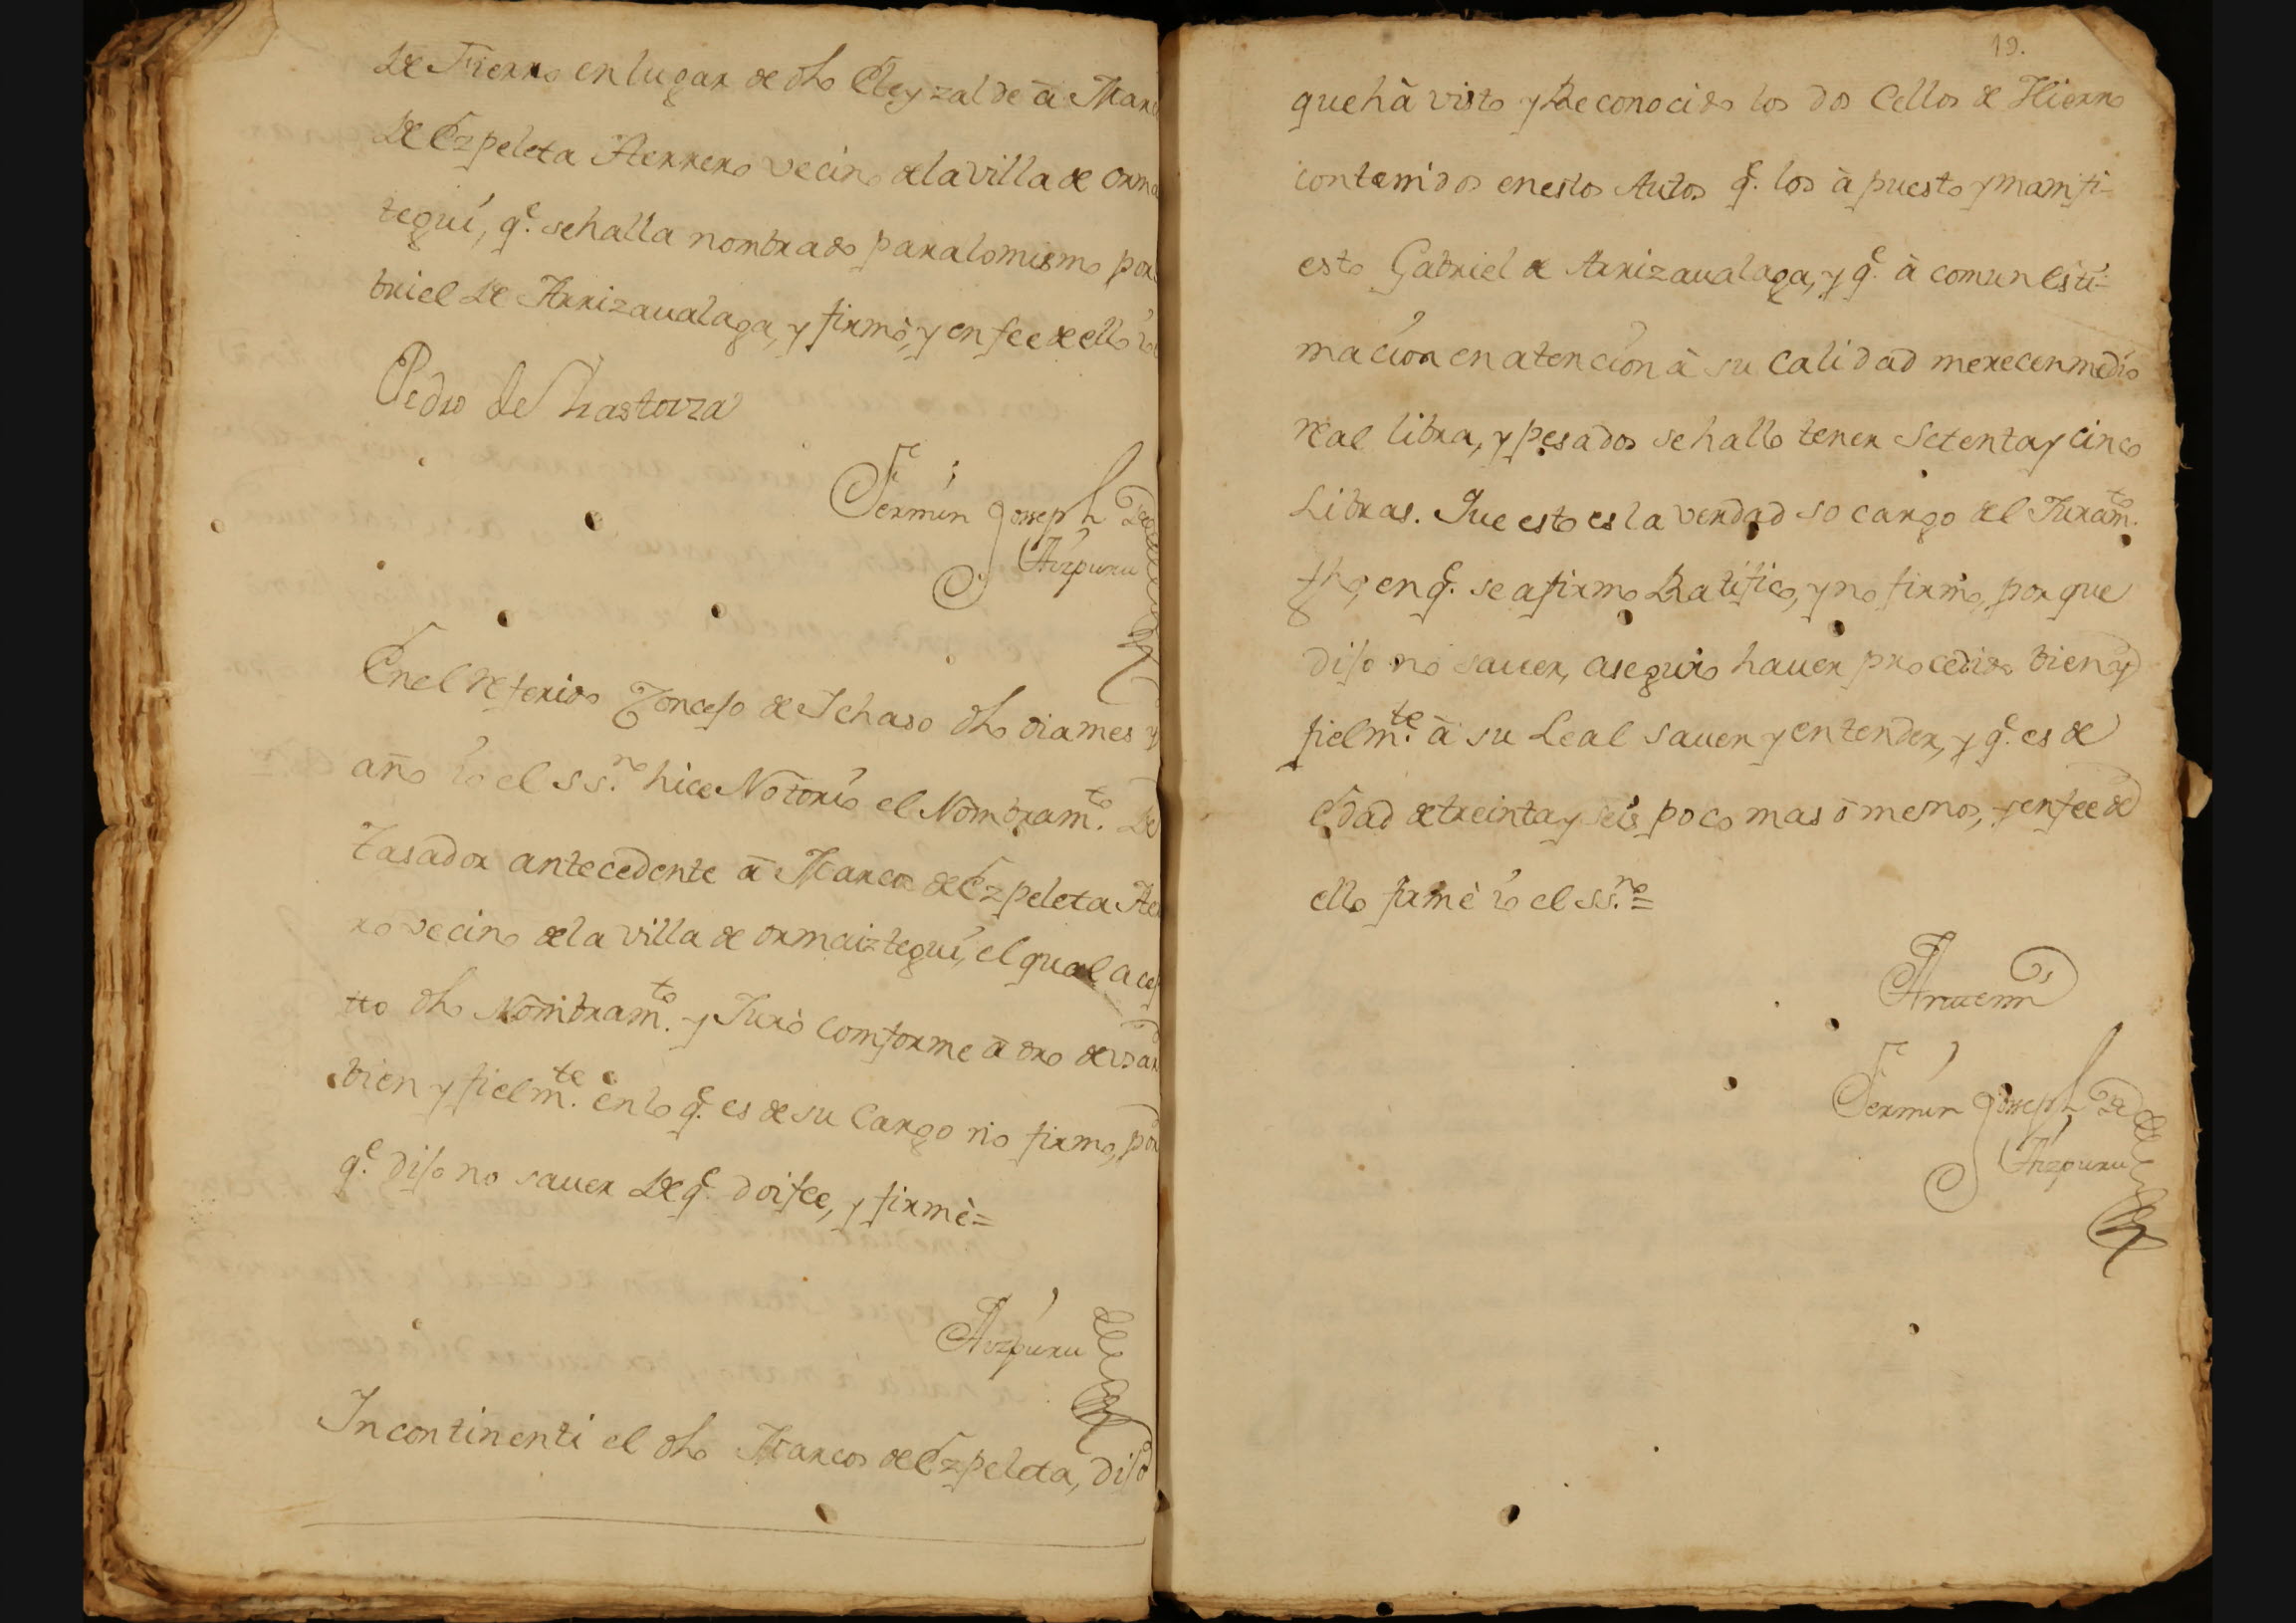 de Fierro en lugar de dho Eleyzalde â Marc
de Ezpeleta Herrero vecino de la villa de orma
tegui, q.e se halla nombrado para lo mismo por
briel de Arrizaualaga, y firmò, y en fee de ello io
Pedro de Lhastorza
Fermin Joseph de
Aizpuru
En el referido Concejo de Ichaso dho dia mes y
año io el ss.no hice Notorio el Nombram.to de
Tasador antecedente â Marcos de Ezpeleta He
ro vecino de la villa de ormaiztegui, el qual acep
tto dho Nombram.to y Jurò comforme â dro de vsar
bien y fielm.te en lo q.e es de su Cargo no firmo, por
q.e dijo no sauer de q.e doi fee, y firmè=
Aizpuru
Incontinenti el dho Marcos de Ezpeleta, dijo
19.
que hà visto y Reconocido los dos Cellos de Hierro
contenidos en estos Autos q.e los à puesto y manifi-
esto Gabriel de Arrizaualaga, y q.e à comun Esti-
macion en atencion à su Calidad merecen medio
real libra, y pesados se hallo tener Setenta y cinco
Libras. Que esto es la verdad so cargo del Juram.to
fho, en q.e se afirmo Ratifico, y no firmo, por que
dijo no sauer, aseguro hauer procedido bien y
fielm.te â su Leal sauer y entender, y q.e es de
Edad de treinta y seis poco mas ò menos, y en fee de
ello firmè io el ss.no=
Antemi
Fermin Joseph de
Aizpuru